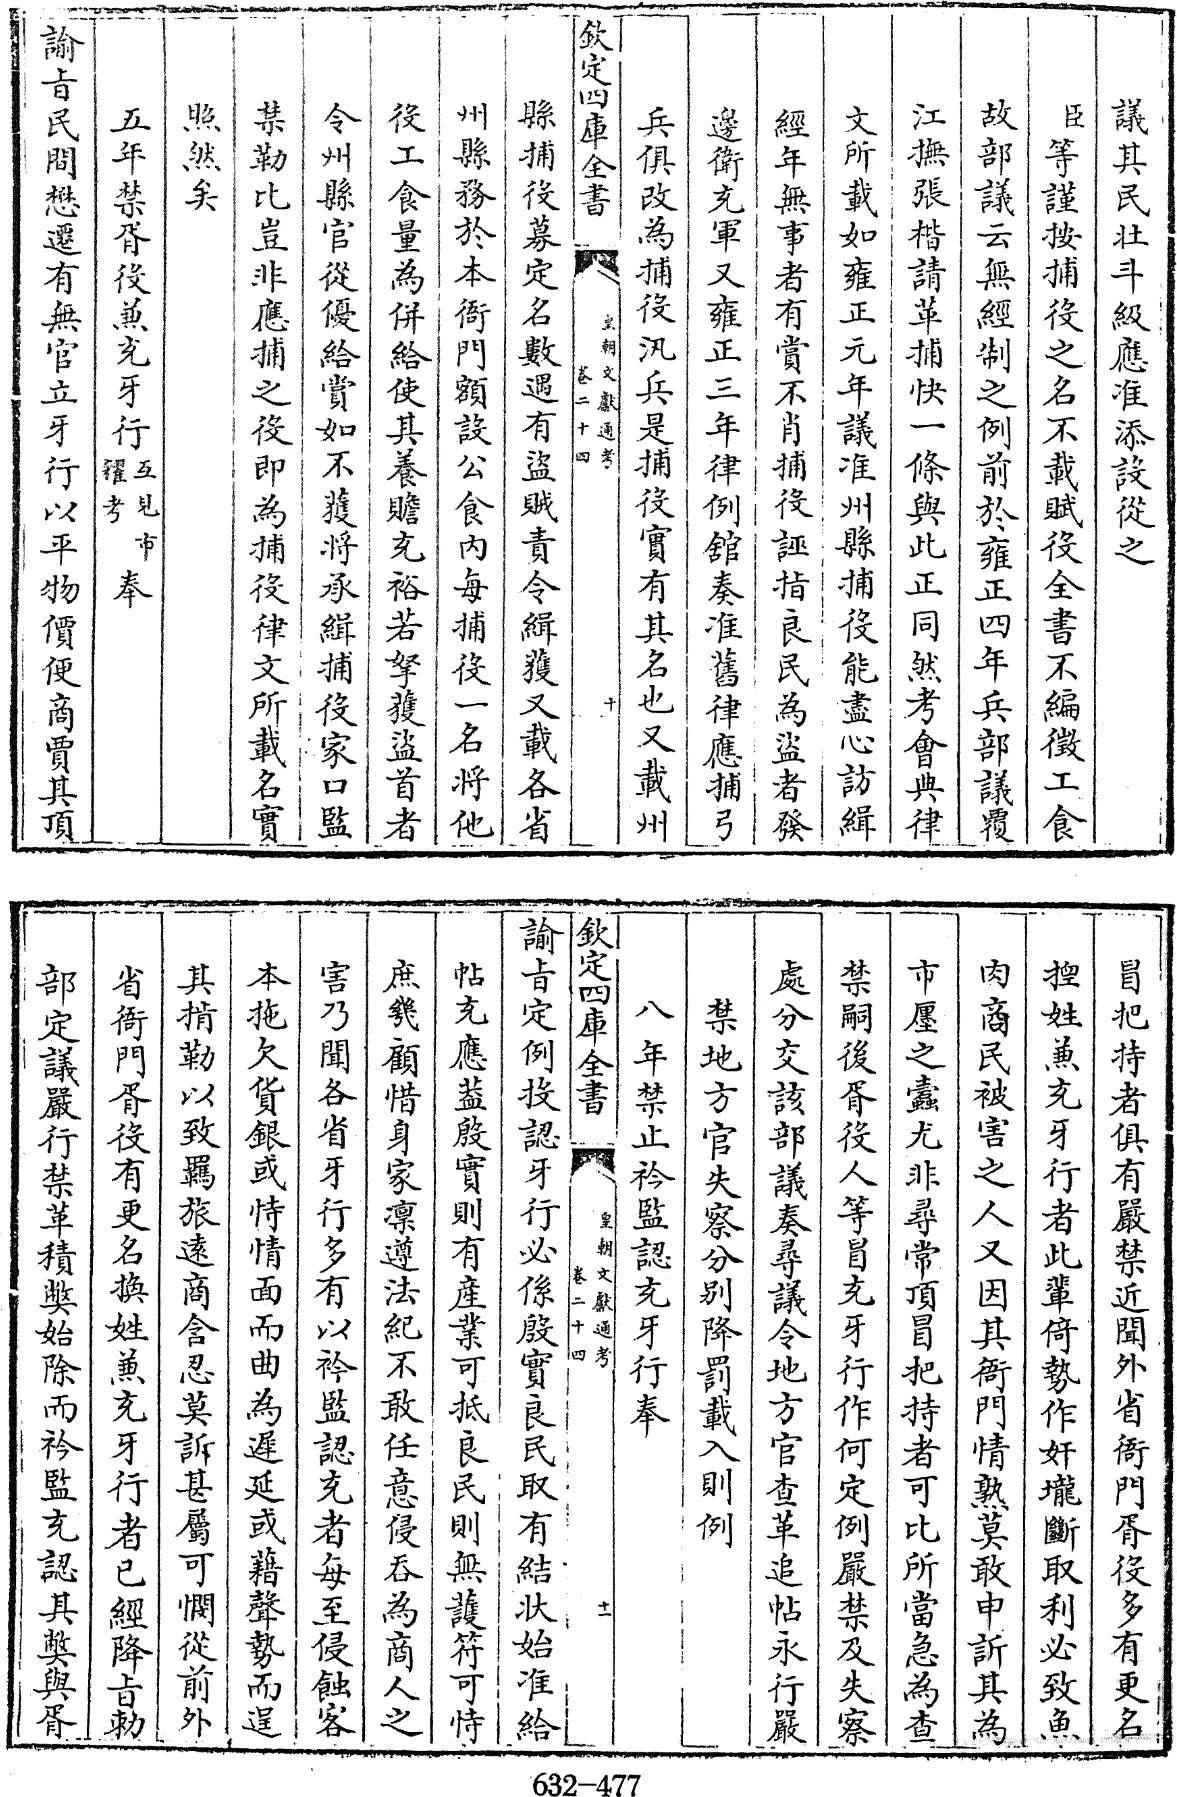 議其民壯斗級應准添設從之
臣等謹按捕役之名不載賦役全書不編徵工食
故部議云無經制之例前於雍正四年兵部議覆
江撫張楷請革捕快一條與此正同然考會典律
文所載如雍正元年議准州縣捕役能盡心訪緝
經年無事者有賞不肖捕役誣指良民為盜者發
邊衛充軍又雍正三年律例館奏准舊律應捕弓
兵俱改為捕役汛兵是捕役實有其名也又載州
欽定四庫全書
皇朝文獻通考
卷二十四
十
縣捕役募定名數遇有盜賊責令緝獲又載各省
州縣務於本衙門額設公食内每捕役一名將他
役工食量為併給使其養贍充裕若拏獲盜首者
令州縣官從優給賞如不獲將承緝捕役家口監
禁勒比豈非應捕之役即為捕役律文所載名實
照然矣
五年禁胥役兼充牙行互見市糴考奉
諭㫖民間懋遷有無官立牙行以平物價便商賈其頂
冒把持者俱有嚴禁近聞外省衙門胥役多有更名
揑姓兼充牙行者此輩倚勢作奸壠斷取利必致魚
肉商民被害之人又因其衙門情熟莫敢申訴其為
市廛之蠹尤非尋常頂冒把持者可比所當急為查
禁嗣後胥役人等冒充牙行作何定例嚴禁及失察
處分交該部議奏尋議令地方官查革追帖永行嚴
禁地方官失察分别降罰載入則例
八年禁止衿監認充牙行奉
欽定四庫全書
皇朝文獻通考
卷二十四
十一
諭㫖定例投認牙行必係殷實良民取有結狀始准給
帖充應葢殷實則有産業可抵良民則無護符可恃
庶幾顧惜身家凛遵法紀不敢任意侵吞為商人之
害乃聞各省牙行多有以衿監認充者每至侵蝕客
本拖欠貨銀或恃情面而曲為遲延或藉聲勢而逞
其揹勒以致羈旅遠商含忍莫訴甚屬可憫從前外
省衙門胥役有更名換姓兼充牙行者已經降㫖勅
部定議嚴行禁革積獘始除而衿監充認其獘與胥
632-477